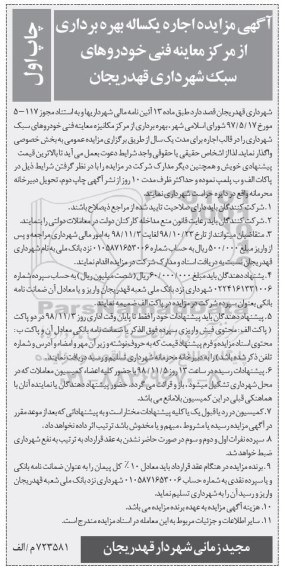 آگهی مزایده اجاره یکساله بهره برداری
از مرکز معاینه فنی خودروهای
سبک شهرداری قهدریجان
چاپ اول
شهرداری قهدریجان قصد دارد طبق ماده ۱۳ آئین نامه مالی شهرداریها و به استناد مجوز ۱۱۷-۵
مورخ ۹۷/۵/۱۷ شورای اسلامی شهر، بهره برداری از مرکز مکانیزه معاینه فنی خودروهای سبک
شهرداری را در قالب اجاره برای مدت یک سال از طریق برگزاری مزایده عمومی به بخش خصوصی
واگذار نماید. لذا از اشخاص حقیقی یا حقوقی واجد شرایط دعوت بعمل می آید تا بالاترین قیمت
پیشنهادی خویش و همچنین دیگر مدارک شرکت در مزایده را با در نظر گرفتن شرایط ذیل در
پاکات الف و ب پلمپ نموده و حداکثر ظرف مدت ۱۰ روز از نشر آگهی چاپ دوم، تحویل دبیرخانه
محرمانه واقع در دایره حراست شهرداری نمایند.
۱. شرکت کنندگان باید دارای صلاحیت تایید شده از مراجع ذیصلاح باشند.
۲. شرکت کنندگان باید رعایت قانون منع مداخله کارکنان دولت در معاملات دولتی را بنمایند.
۳. متقاضیان میتوانند از تاریخ ۹۸/۱۰/۲۳ لغایت ۹۸/۱۱/۲ به امور مالی شهرداری مراجعه و پس
از واریز مبلغ ۵۰۰/۰۰۰ ریال به حساب شماره ۰۱۰۵۸۷۱۶۵۳۰۰۶ نزد بانک ملی به نام شهرداری
قهدریجان نسبت به دریافت اسناد و مدارک شرکت در مزایده اقدام نمایند.
۴. پیشنهاد دهندگان باید مبلغ ۶۰/۰۰۰/۰۰۰ ریال (شصت میلیون ریال) به حساب سپرده شماره
۰۲۲۴۱۶۱۳۳۱۰۰۶ شهرداری نزد بانک ملی شعبه قهدریجان واریز و یا معادل آن ضمانت نامه
بانکی بعنوان سپرده شرکت در مزایده در پاکت الف ضمیمه نمایند.
۵. پیشنهاد دهندگان باید پیشنهادات خود را فقط تا پایان وقت اداری روز ۹۸/۱۱/۳ در دو پاکت
( پاکت الف: محتوی فیش واریزی سپرده فوق الذکر یا ضمانت نامه بانکی معادل آن و پاکت ب:
محتوی اسناد مزایده و فرم پیشنهاد قیمت که به حروف نوشته و زیر آن مهر و امضاء و آدرس و شماره
تلفن ذکر شده باشد) را به دبیرخانه محرمانه شهرداری تسلیم و رسید دریافت نمایند.
۶. پیشنهادات رسیده در ساعت ۱۳ روز ۹۸/۱۱/۵ با حضور کلیه اعضاء کمیسیون معاملات که در
محل شهرداری تشکیل میشود، باز و قرائت می گردد. حضور پیشنهاد دهندگان یا نماینده آنان با
هماهنگی قبلی در این کمیسیون بلامانع می باشد.
۷. کمیسیون در رد یا قبول یک یا کلیه پیشنهادات مختار است و به پیشنهاداتی که بعد از موعد مقرر
در آگهی مزایده رسیده یا مشروط، مبهم و یا مخدوش باشد ترتیب اثر داده نخواهد داد.
۸. سپرده نفرات اول و دوم و سوم در صورت حاضر نشدن به عقد قرارداد به ترتیب به نفع شهرداری
ضبط خواهد شد.
۹. برنده مزایده در هنگام عقد قرارداد باید معادل ۱۰٪ کل پیمان را به عنوان ضمانت نامه بانکی
و یا سپرده نقدی به شماره حساب ۰۱۰۵۸۷۱۶۵۳۰۰۶ شهرداری نزد بانک ملی شعبه قهدریجان
واریز و رسید آن را به شهرداری تسلیم نماید.
۱۰. هزینه آگهی مزایده به عهده برنده مزایده می باشد.
۱۱. سایر اطلاعات و جزئیات مربوط به این معامله در اسناد مزایده مندرج است.
مجید زمانی شهردار قهدریجان
۷۲۳۵۸۱/م الف